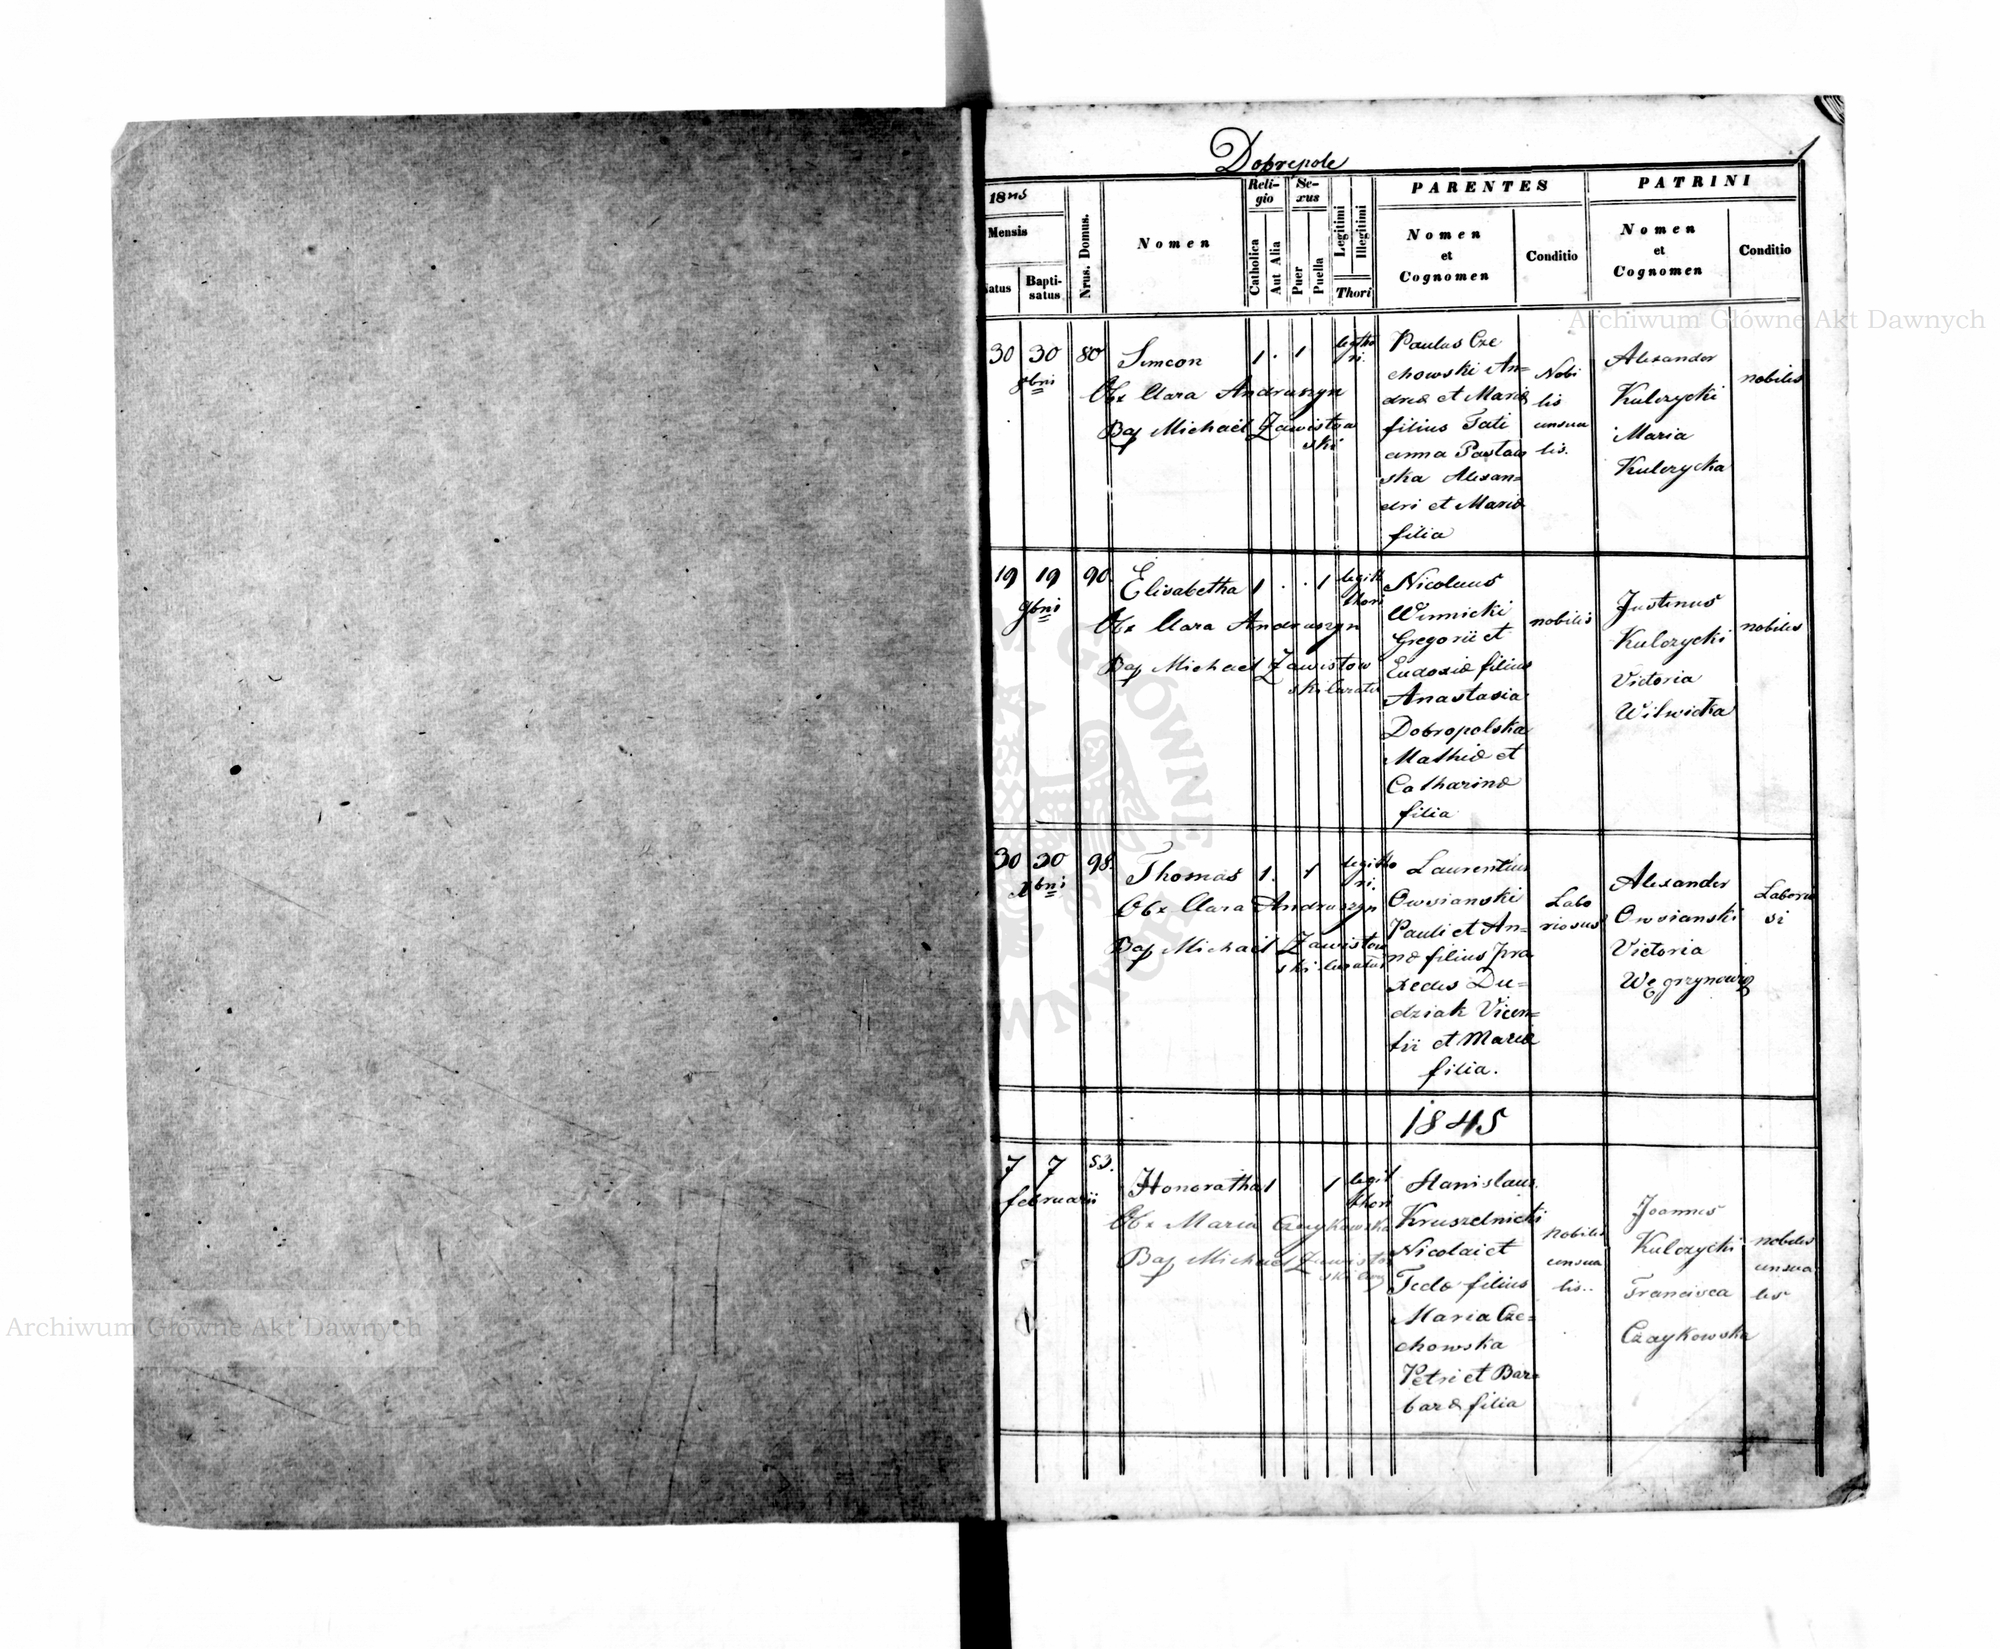 Dobrepole
1
1845
Mensis
Natus
Bapti-
satus
Nrus. Domus.
Nomen
Reli-
gio
Catholica
Aut Alia
Se-
xus
Puer
Puella
Legitimi
Illegitimi
Thori
PARENTES
Nomen
et
Cognomen
Conditio
PATRINI
Nomen
et
Cognomen
Conditio
30 30 80 Simeon 1 . 1
legit tho
ri.
Obx Clara Andruszyn
Bap Michael Zawistow
ski
Paulus Cze
chowski An=
dreæ et Mariæ
filius Tati
anna
ska Alexan=
dri et Mariæ
filia
Nobi
lis
unsua
lis.
Alexander
Kulczycki
Maria
Kulczycka
nobiles
19 19 90. Elisabetha 1 . . 1
9bris
legit
thori
Obx Clara Andruszyn
Bap Michael Zawistow
ski Curatus
Nicolaus
Winnicki
Gregorii et
Eudoxiæ filius
Anastasia
Dobropolska
Mathiæ et
Catharinæ
filia
nobilis
Justinus
Kulczycki
Victoria
Witwicka
nobiles
30 30 98. Thomas 1. 1
Xbris
legit tho
ri.
Obx Clara Andruszyn
Bap Michael Zawistow
ski Curatus
Laurentius
Owsianski
Pauli et An=
næ filius Pra
xedes Du=
dziak Vicen=
tii et Mariæ
filia.
Labo
riosus
Alexander
Owsianski
Victoria
Węgrzynowicz
Laborio
si
1845
7 7 53. Honoratha 1 1
februarii
legit
thori
Obx Maria Czaykowska
Bap Michael Zawistow
ski
Stanislaus
Kruszelnicki
Nicolai et
Teclæ filius
Maria Cze=
chowska
Petri et Bar=
baræ filia
nobilis
unsua
lis..
Joannes
Kulczycki
Francisca
Czaykowska
nobiles
unsua
les
Archiwum Główne Akt Dawnych
Archiwum Główne Akt Dawnych